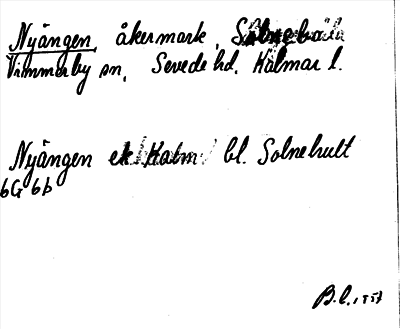 Nyängen, åkermark,
Vimmerby sn, Sevede hd. Kalmar l.
Nyängen ek. Kalm. bl. Solnehult
6G 6b